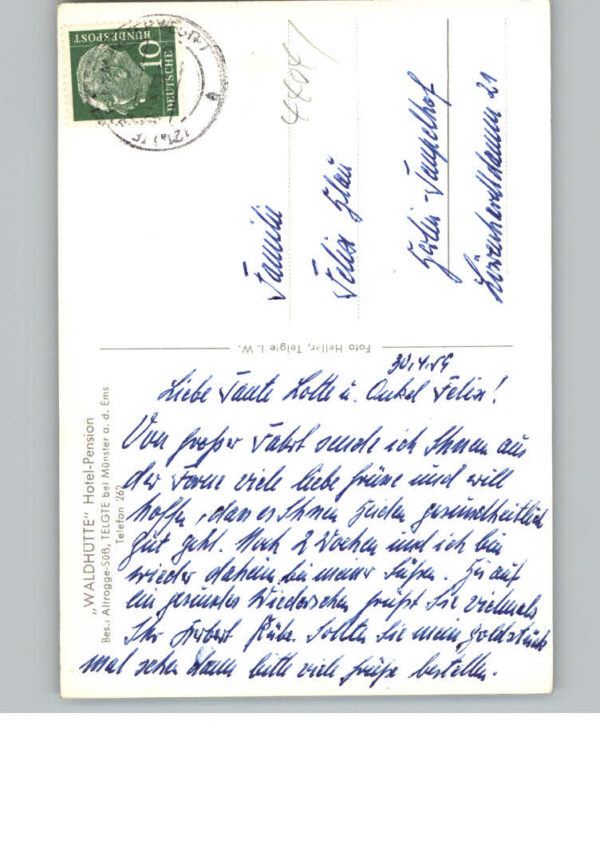 "WALDHÜTTE" Hotel-Pension
Bes.: Altrogge-Süß, TELGTE bei Münster a. d. Ems
Telefon 262
30.4.59
Liebe Tante Lotte u. Onkel Felix!
Von großer Fahrt sende ich Ihnen aus
der Ferne viele liebe Grüsse und will
hoffen, dass es Ihnen beiden gesundheitlich
gut geht. Noch 2 Wochen und ich bin
wieder daheim bei meiner Süßen. Bis auf
ein gesundes Wiedersehen grüßt Sie vielmals
Ihr Herbert Sollten Sie mein Goldstück
mal sehen dann bitte viele Grüße bestellen.
Foto-Heller, Telgte i. W.
DEUTSCHE
BUNDESPOST
10
Familie
Felix Glau
Berlin-Tempelhof
21